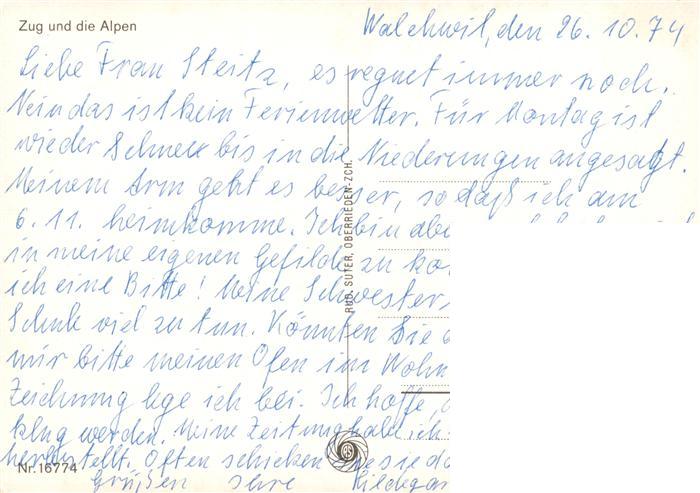 Zug und die Alpen
Walchwil, den 26. 10. 74
Liebe Frau Steitz, es regnet immer noch.
Nein das ist kein Ferienwetter. Für Montag ist
wieder Schnee bis in die Niederungen angesagt.
Meinem Arm geht es besser, so daß ich am
6. 11. heimkomme. Ich bin abe
in meine eigenen Gefilde zu ko
ich eine Bitte! Meine Schwester
Schule viel zu tun. Könnten Sie
mir bitte meinen Ofen im Wohn
Zeichnung lege ich bei. Ich hoffe,
klug werden. Meine Zeitung habe ich
Often schicken
Grüßen
RUD. SUTER, OBERRIEDEN-ZCH.
Nr. 16774